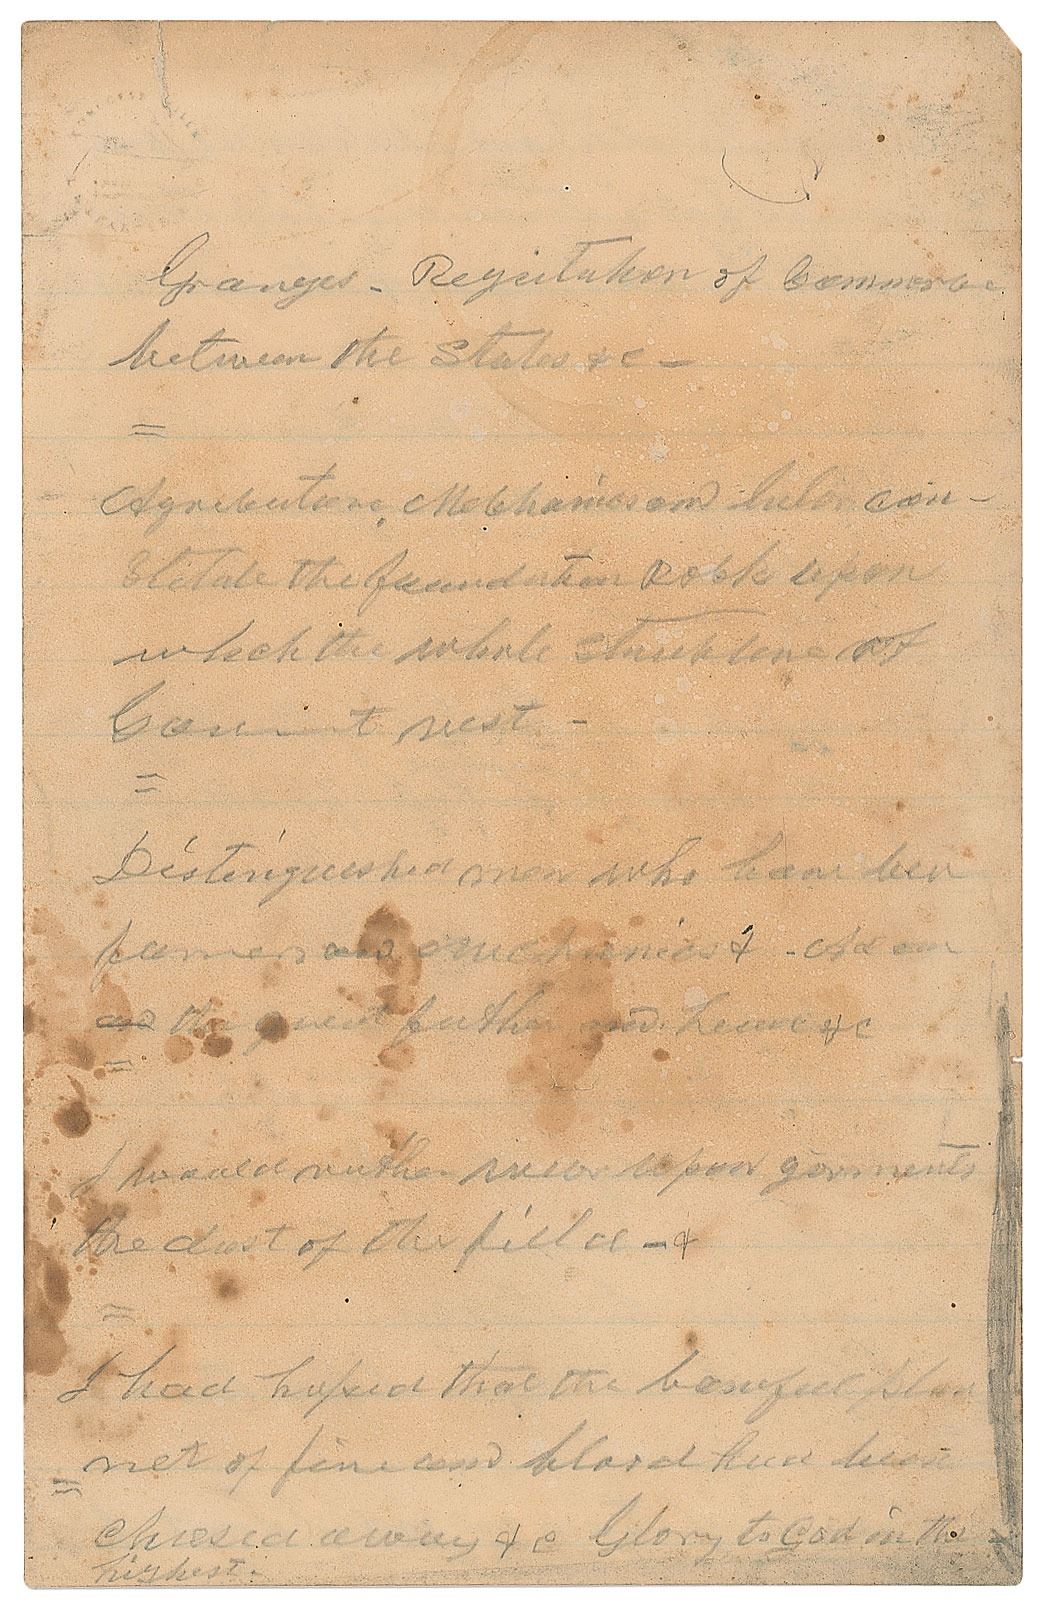 Granges - Regulation of Commerce
between the States &c -
=
Agriculture, Mechanics and labor con-
stitute the foundation Rock upon
which the whole structure of
Gov____t rest -
=
Distinguished men who have ben
farmers and mechanics & - Adam
the great father and
=
I would rather see upon garments
the dust of the field -&
=
I had hoped that the baneful pla
net of fire and blood had been
chased away &c Glory to God in the
highest.